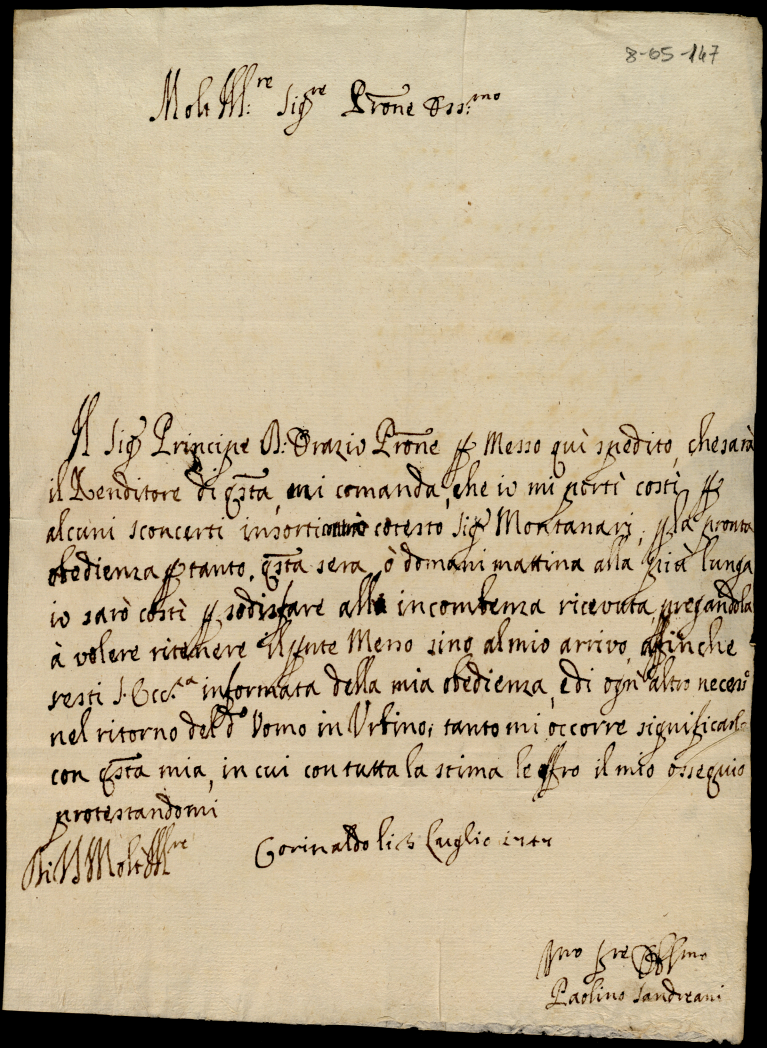 8-65-147
Molt Ill:re Sig.re Prone Oss:mo
Il Sig. Principe D: Orazio Prone p Messo quì spedito, che sarà
il Renditore di qsta, mi comanda, che io mi porti costì p
alcuni sconcerti insorti contro cotesto Sig. Montanari, p la pronta
obedienza p tanto, qsta sera, ò domani mattina alla più lunga
io sarò costì p sodisfare alla incombenza ricevuta, pregandola
à volere ritenere il pnte Messo sino al mio arrivo, affinche
resti S. Ecc.za informata della mia obedienza, e di ogn'altro necess.o
nel ritorno del d.o Uomo in Urbino; tanto mi occorre significarle
con qsta mia, in cui con tutta la stima le offro il mio ossequio
protestandomi
Di VS Molt Ill.re
Corinaldo li Luglio
Paolino Sandreani